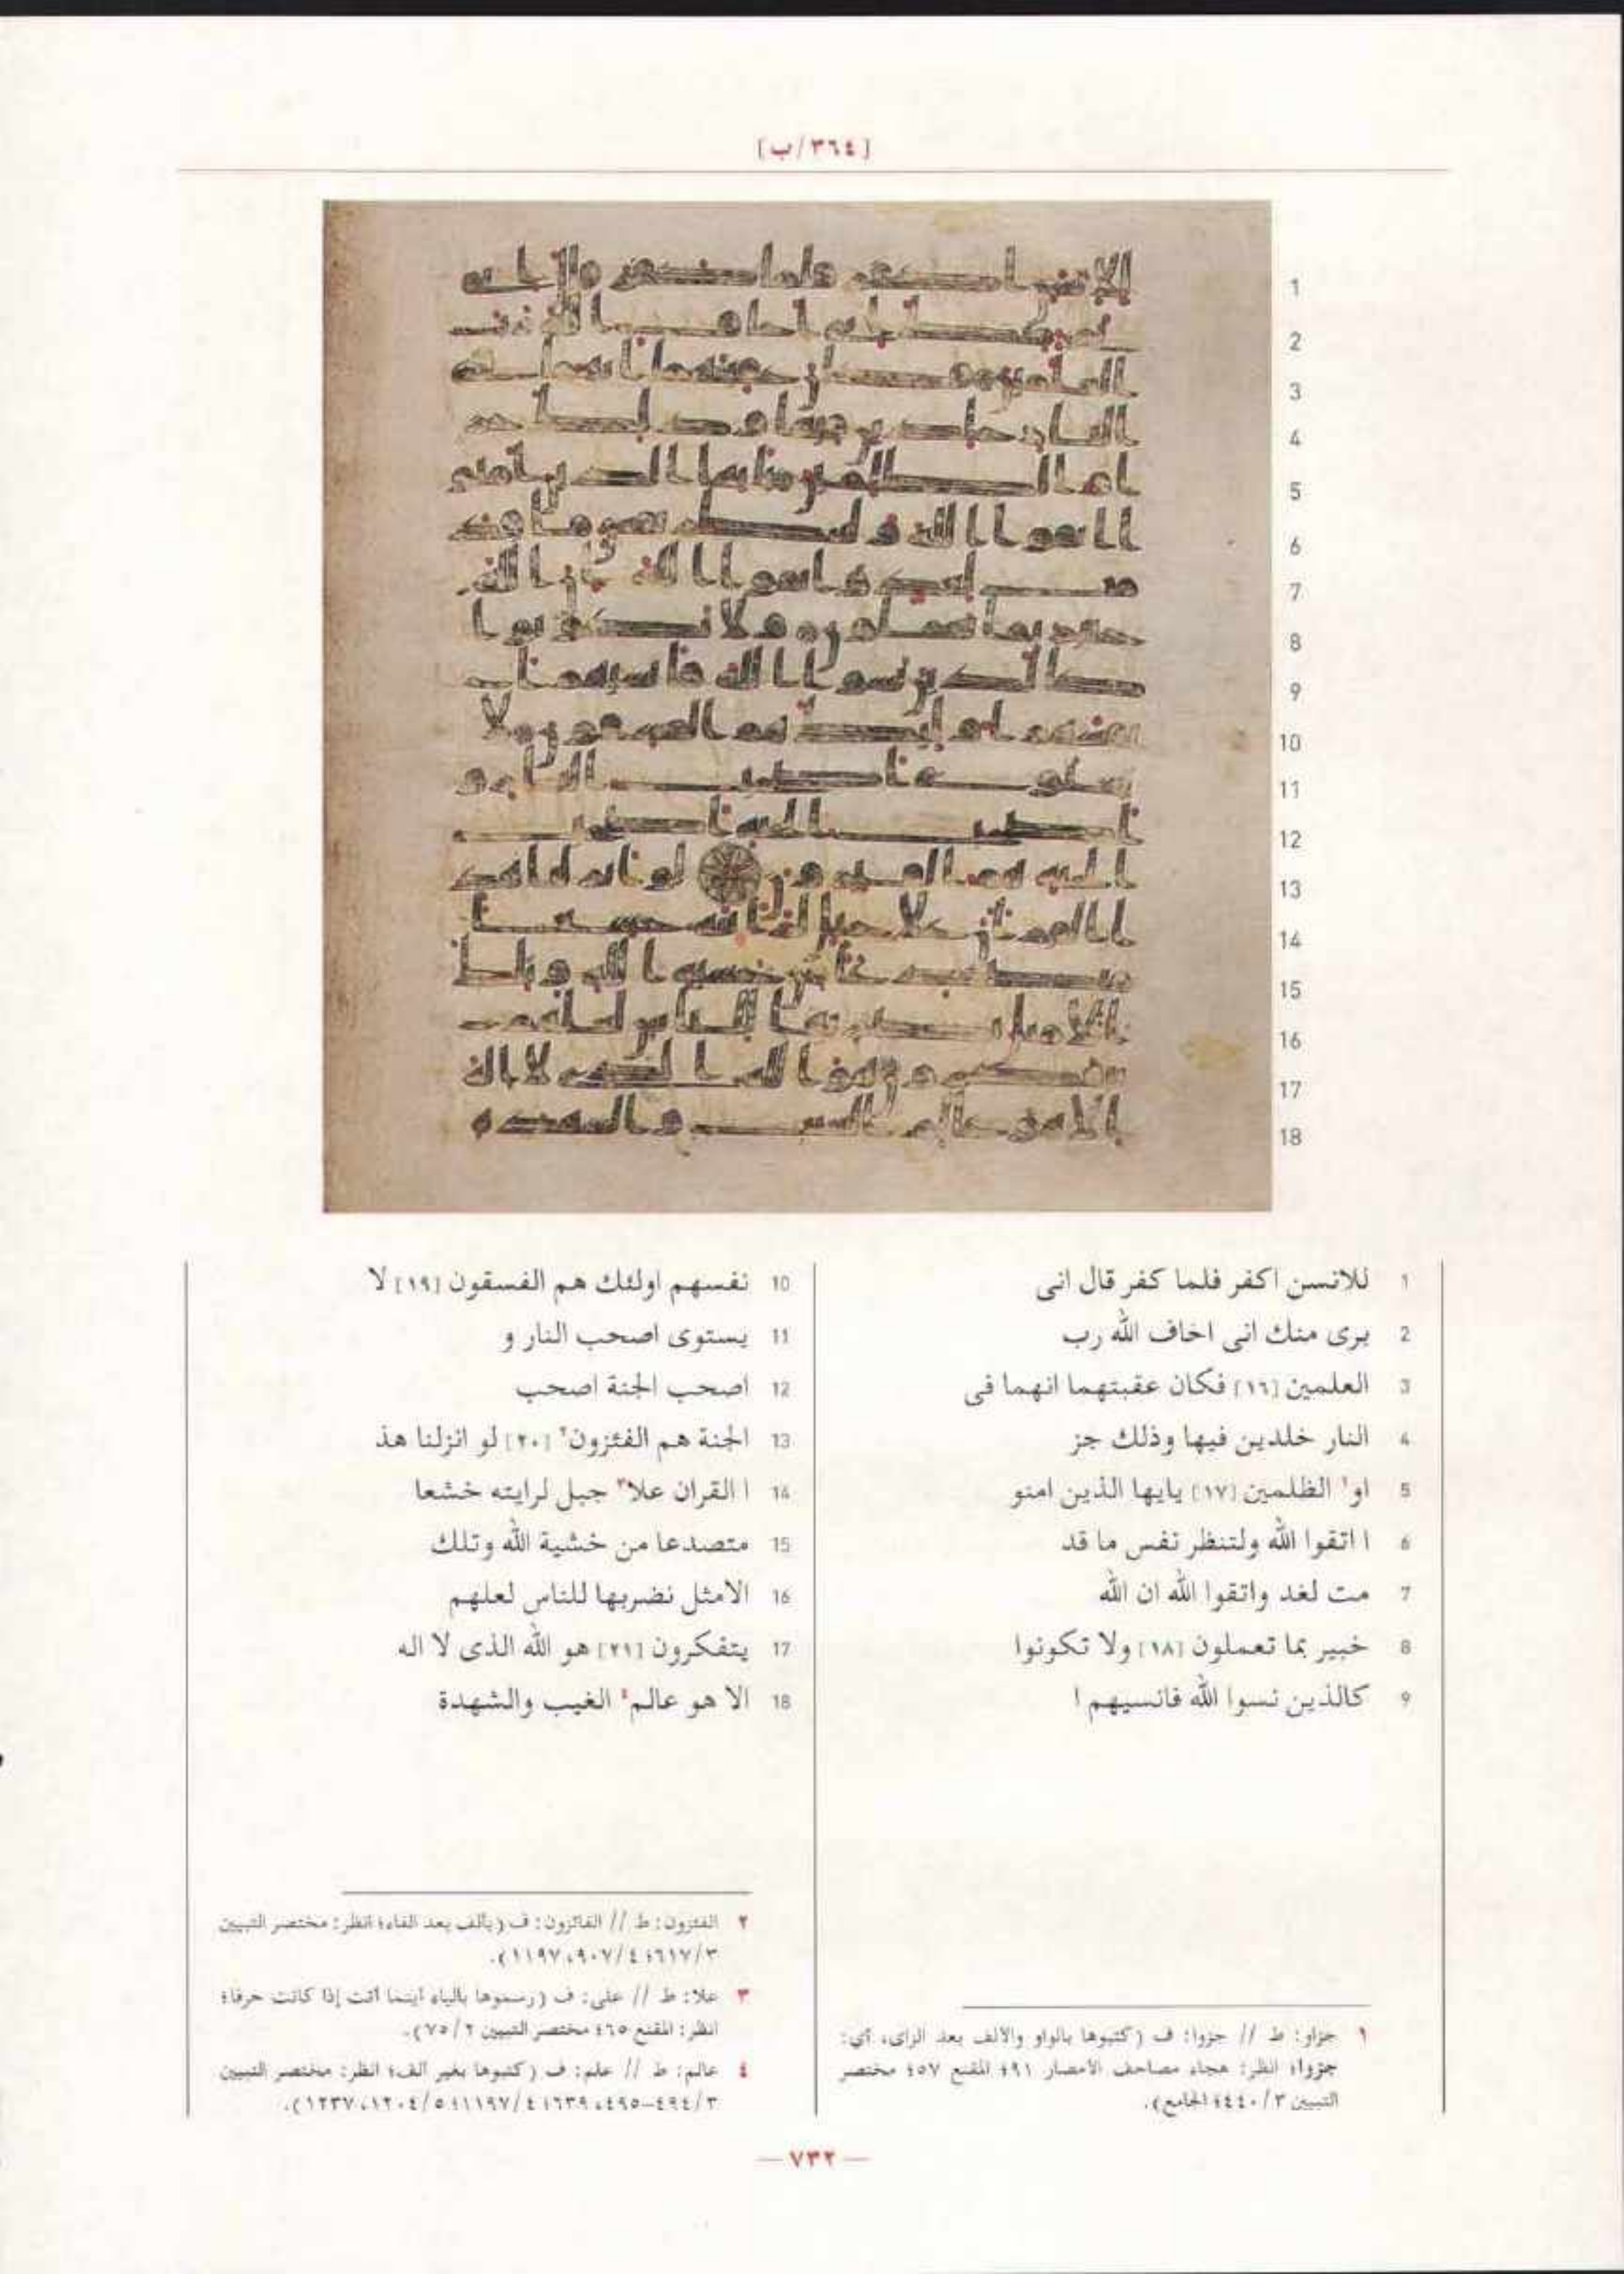 [٣٦٤/ب]
1 للانسن اكفر فلما كفر قال انى
2 برى منك انى اخاف الله رب
3 العلمين [١٦] فكان عقبتهما انهما فى
4 النار خلدين فيها وذلك جز
5 او١ الظلمين [١٧] يايها الذين امنو
6 ا اتقوا الله ولتنظر نفس ما قد
7 مت لغد واتقوا الله ان الله
8 خبير بما تعملون [١٨] ولا تكونوا
9 كالذين نسوا الله فانسيهم ا
10 نفسهم اولئك هم الفسقون [١٩] لا
11 يستوى اصحب النار و
12 اصحب الجنة اصحب
13 الجنة هم الفئزون٢ [٢٠] لو انزلنا هذ
14 ا القران علا٣ جبل لرايته خشعا
15 متصدعا من خشية الله وتلك
16 الامثل نضربها للناس لعلهم
17 يتفكرون [٢١] هو الله الذى لا اله
18 الا هو عالم٤ الغيب والشهدة
١ جزاو: ط // جزوا: ف (كتبوها بالواو والالف بعد الزاى، أي:
جزوا؛ انظر: هجاء مصاحف الأمصار ٩١؛ المقنع ٥٧؛ مختصر
التبيين ٣/٤٤٠؛ الجامع).
٢ الفئزون: ط // الفائزون: ف (بألف بعد الفاء؛ انظر: مختصر التبيين
٣/٦١٧؛ ٤/٩٠٧، ١١٩٧).
٣ علا: ط // على: ف (رسموها بالياء أينما أتت إذا كانت حرفا؛
انظر: المقنع ٦٥؛ مختصر التبيين ٢/٧٥).
٤ عالم: ط // علم: ف (كتبوها بغير ألف؛ انظر: مختصر التبيين
٣/٤٩٤–٤٩٥، ٦٣٩؛ ٤/١١٩٧؛ ٥/١٢٠٤، ١٢٣٧).
— ٧٣٢ —